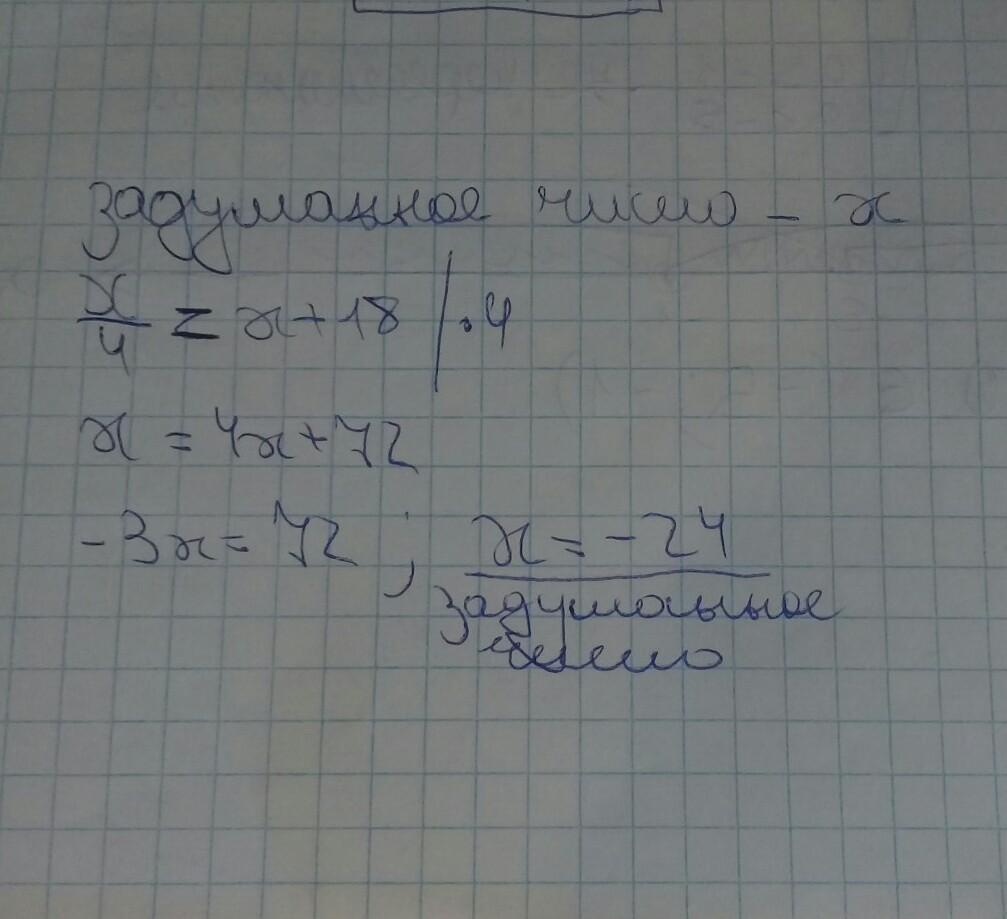 задуманное число - x
x/4 = x+18 /·4
x = 4x+72
-3x = 72 ; x = -24
задуманное
число